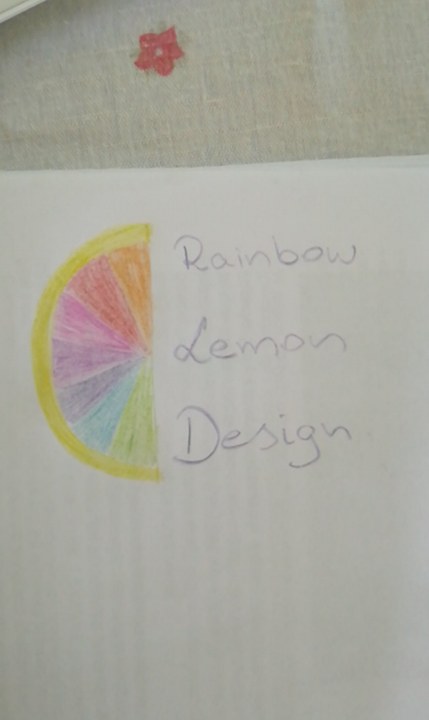 Rainbow
Lemon
Design